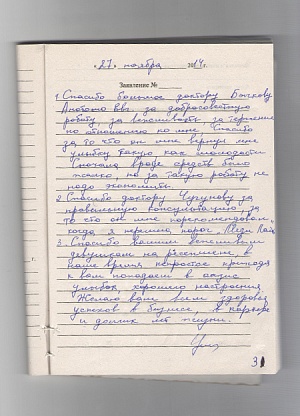 « 27 » ноября 2014 г.
Заявление №
1. Спасибо большое доктору Бычкову
за добросовестную
работу, за вежливость, за терпение
по отношению ко мне. Спасибо
за то что он мне вернул мне
улыбку такую как в молодости
Сначала вроде средств было
жалко, но за такую работу не
надо экономить.
2. Спасибо доктору Чугунову за
правильную консультацию, за
то что он мне порекомендовал,
когда я перешел порог "Меди Лай
3. Спасибо вашим вежливым
девушкам на ресепшене, в
наше время непростое приходя
к вам попадаем в оазис
улыбок, хорошего настроения.
Желаю вам всем здоровья
успехов в бизнесе, в карьере
и долгих лет жизни.
31